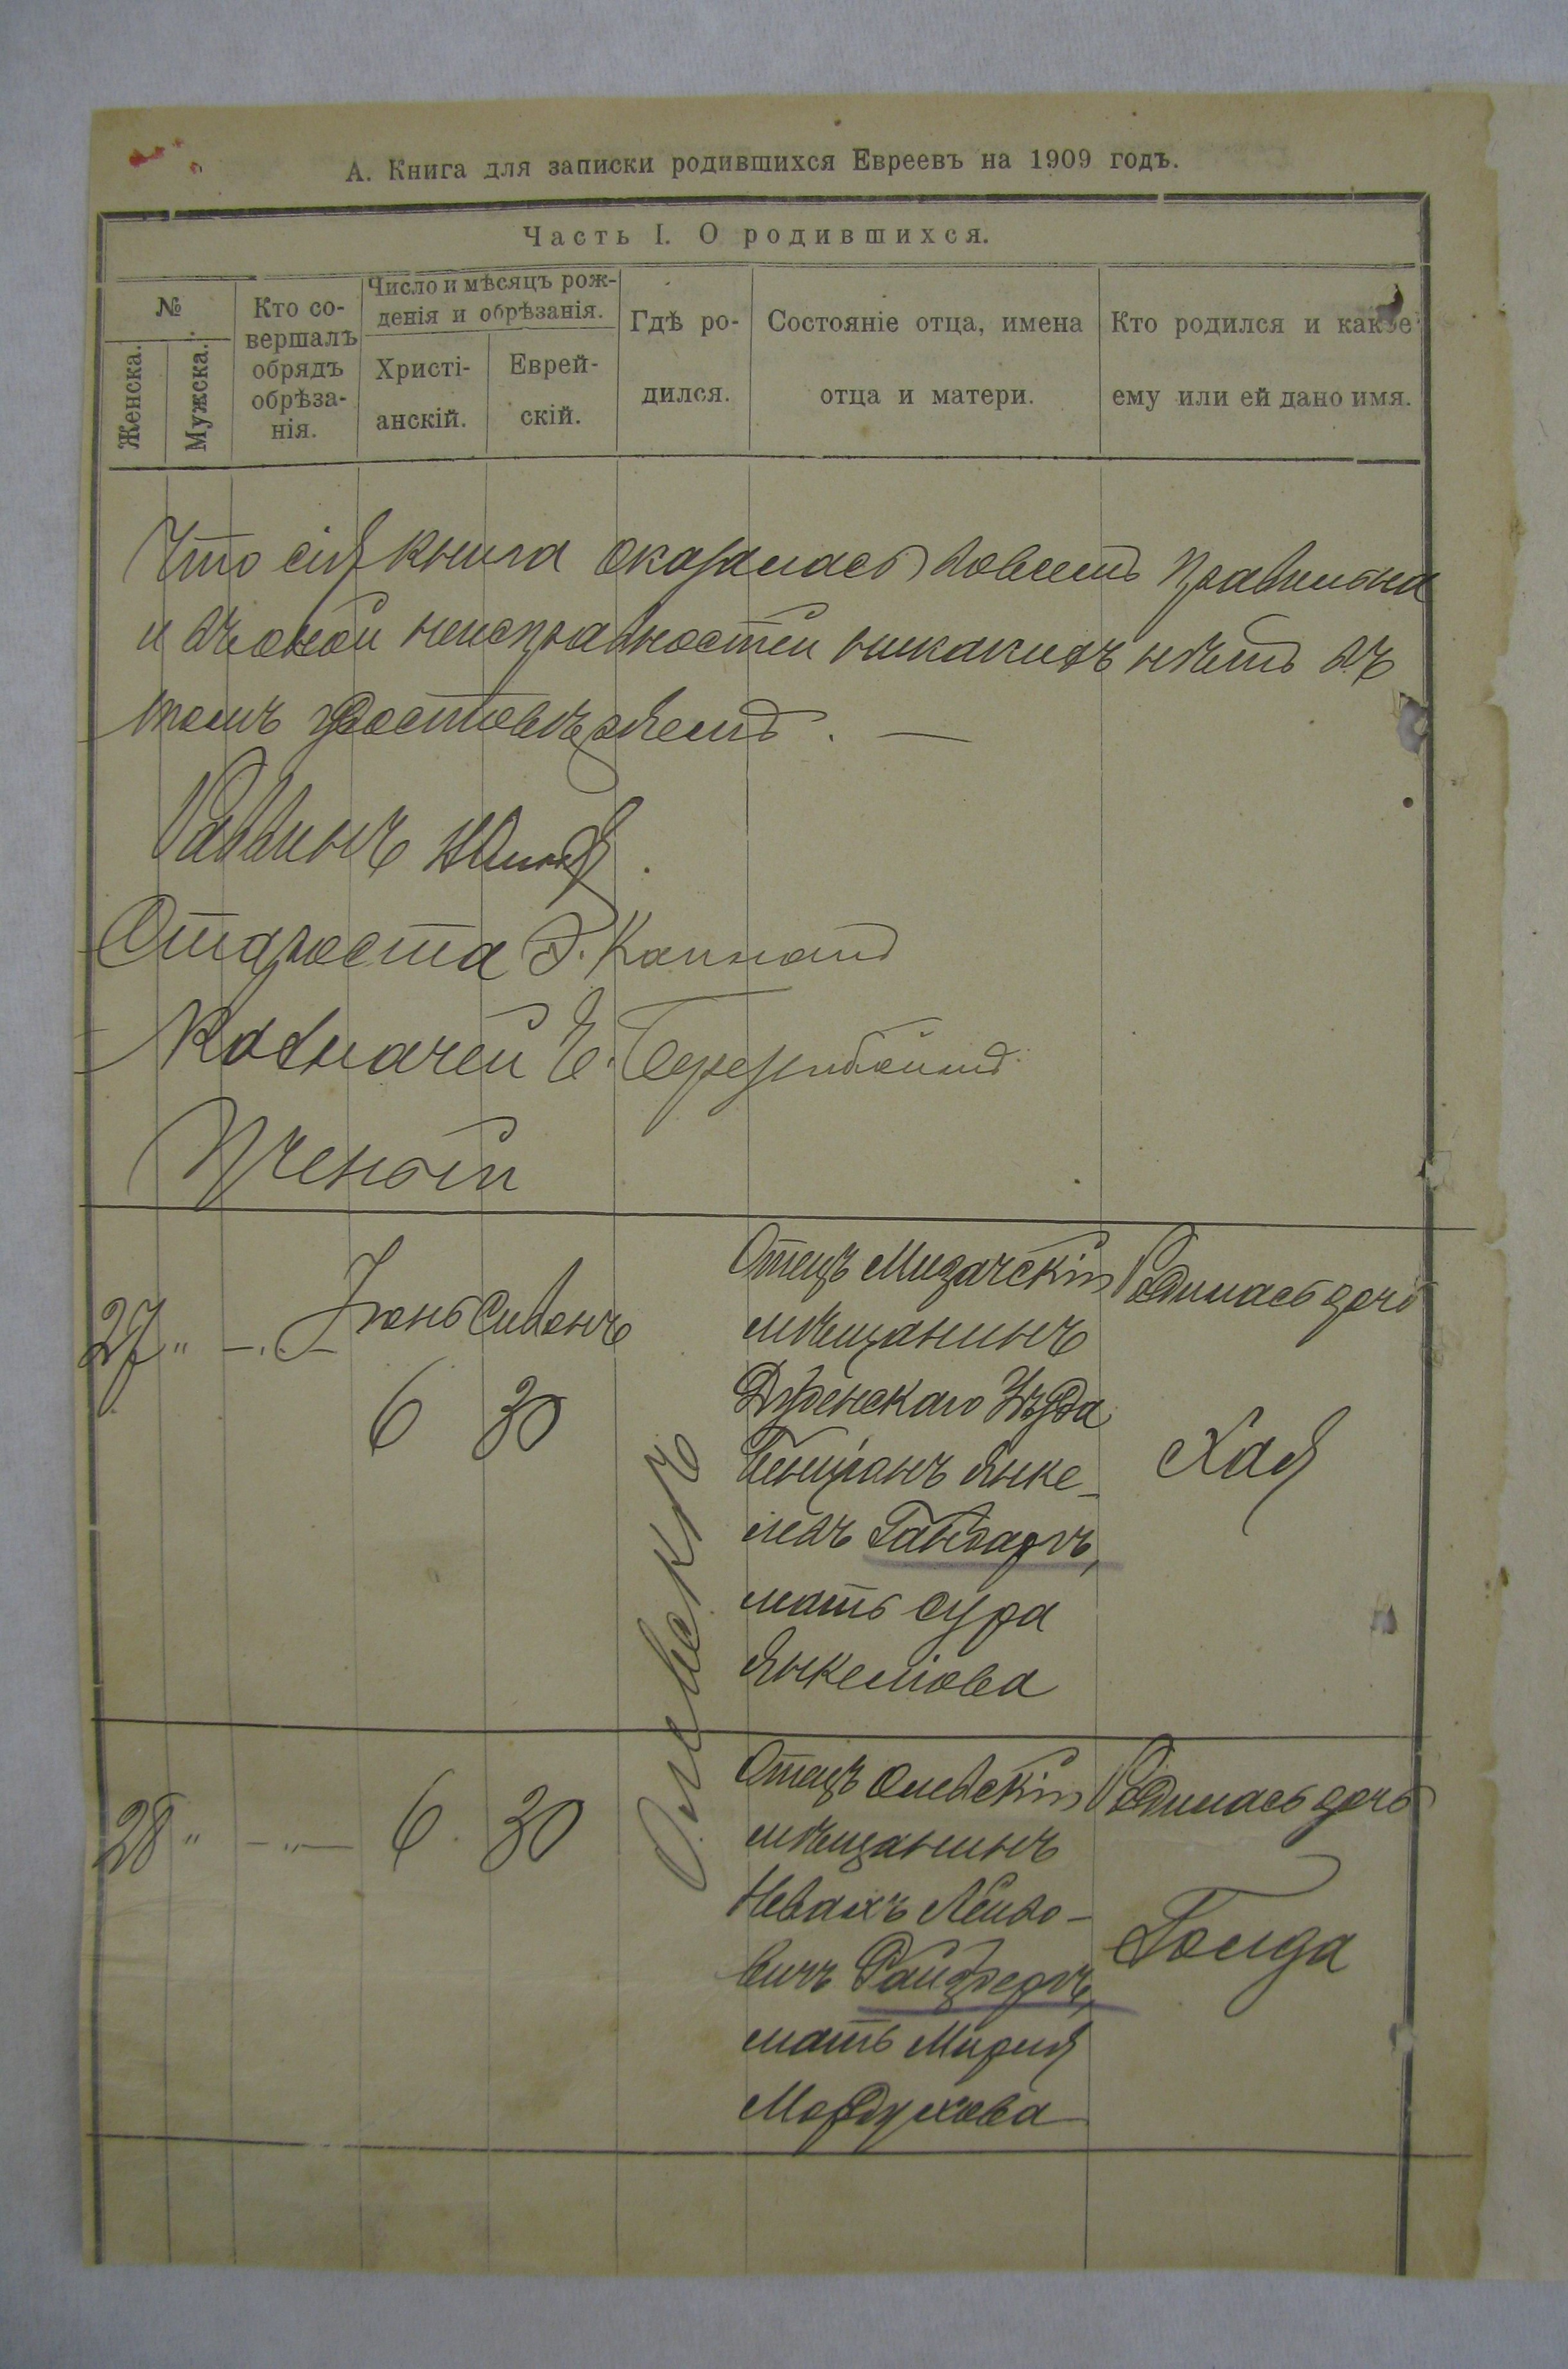 А. Книга для записки родившихся Евреевъ на 1909 годъ.
Часть I. О родившихся.
№
Женска.
Мужска.
Кто со-
вершалъ
обрядъ
обрѣза-
нія.
Число и мѣсяцъ рож-
денія и обрѣзанія.
Христі-
анскій.
Еврей-
скій.
Гдѣ ро-
дился.
Состояніе отца, имена
отца и матери.
Кто родился и какое
ему или ей дано имя.
Что сія книга оказалась совсемъ правильна
и въ оной неисправностей никакихъ нѣтъ въ
томъ удостовѣряемъ. —
Раввинъ
Староста
Казначей Е.
Ученый
27 " —.— Іюнь Сивонъ
6 30
Олевскъ
Отецъ Мизачскій
мѣщанинъ
Дубенскаго Уѣзда
Янке-
левъ
мать Сура
Янкелiова
Родилась дочь
Хая
28 " —"— 6. 30
Отецъ Олевскій
мѣщанинъ
Невахъ Лейзо-
вичъ
мать Мирия
Мордухова
Родилась дочь
Голда